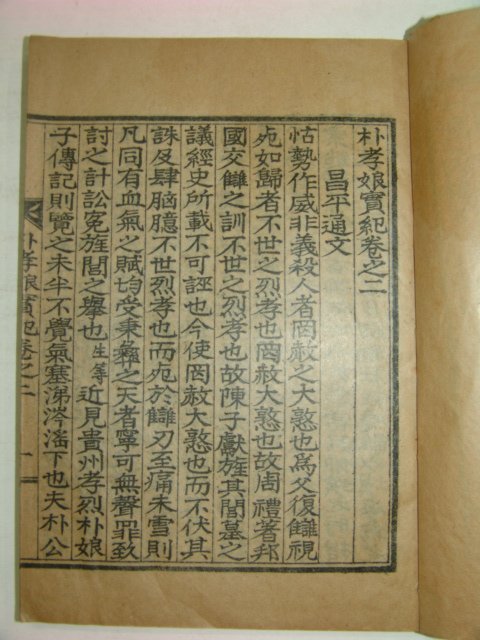 朴孝娘實紀卷之二
昌平通文
怙勢作威非義殺人者罔赦之大憝也爲父復讎視
死如歸者不世之烈孝也罔赦大憝也故周禮著邦
國交讎之訓不世之烈孝也故陳子獻旌其閭墓之
議經史所載不可誣也今使罔赦大憝也而不伏其
誅反肆脑臆不世烈孝也而死於讎刃至痛未雪則
凡同有血氣之賦均受秉彝之天者寧可無聲罪致
討之計訟冤旌閭之擧也生等近見貴州孝烈朴娘
子傳記則覽之未半不覺氣塞涕涔滛下也夫朴公
朴孝娘實紀卷之二 一